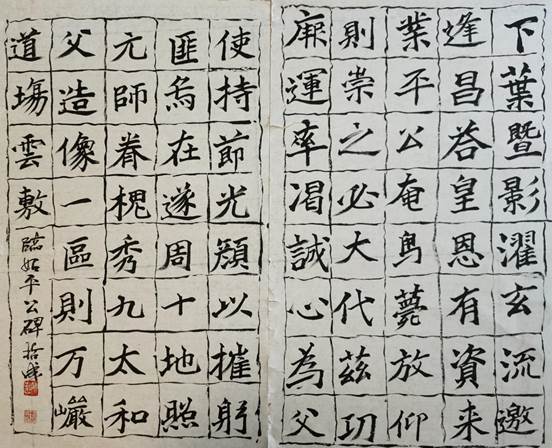 下葉暨影濯玄流邀
逢昌答皇恩有資来
業平公奄鳥薨放仰
則崇之必大代茲㓛
運率渴誠心為父
使持節光以摧躬
匪烏在遂周十地照
元師眷槐秀九太和
父造像一區則万巖
道塲雲敷
臨始平公碑